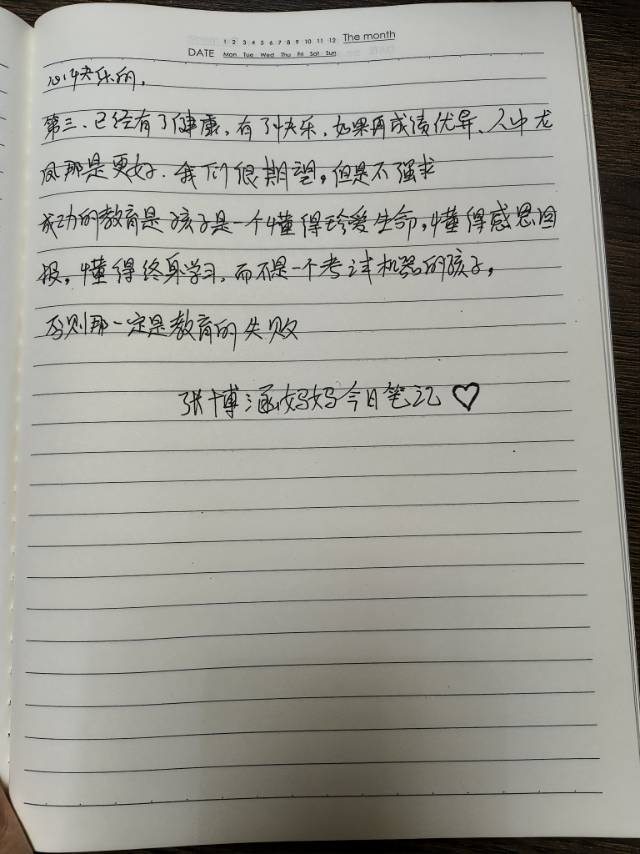 1 2 3 4 5 6 7 8 9 10 11 12 The month
DATE Mon Tue Wed Thu Fri Sat Sun
心快乐的,
第三、已经有了健康,有了快乐,如果再成绩优异、人中龙
凤那是更好.我们很期望,但是不强求
成功的教育是孩子是一个懂得珍爱生命,懂得感恩回
报,懂得终身学习,而不是一个考试机器的孩子,
否则那一定是教育的失败
张博涵妈妈今日笔记♡